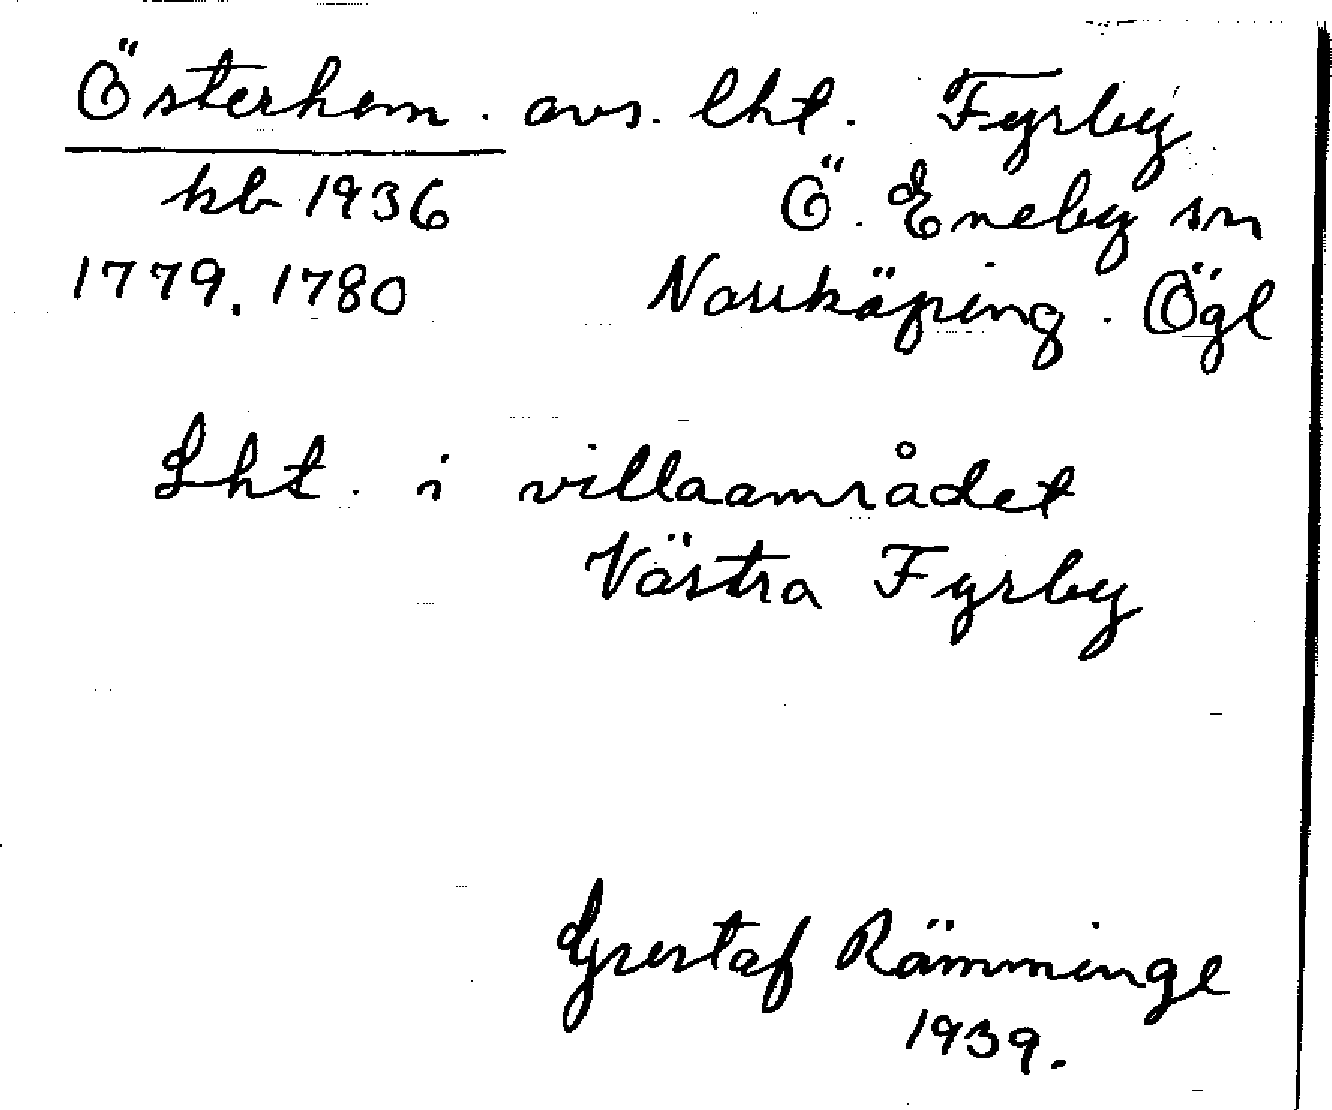 Österhem. avs. lht. Fyrby
kb 1936 Ö. Eneby sn
1779. 1780 Norrköping. Ögl
Lht. i villaområdet
Västra Fyrby
Gustaf Rämminge
1939.